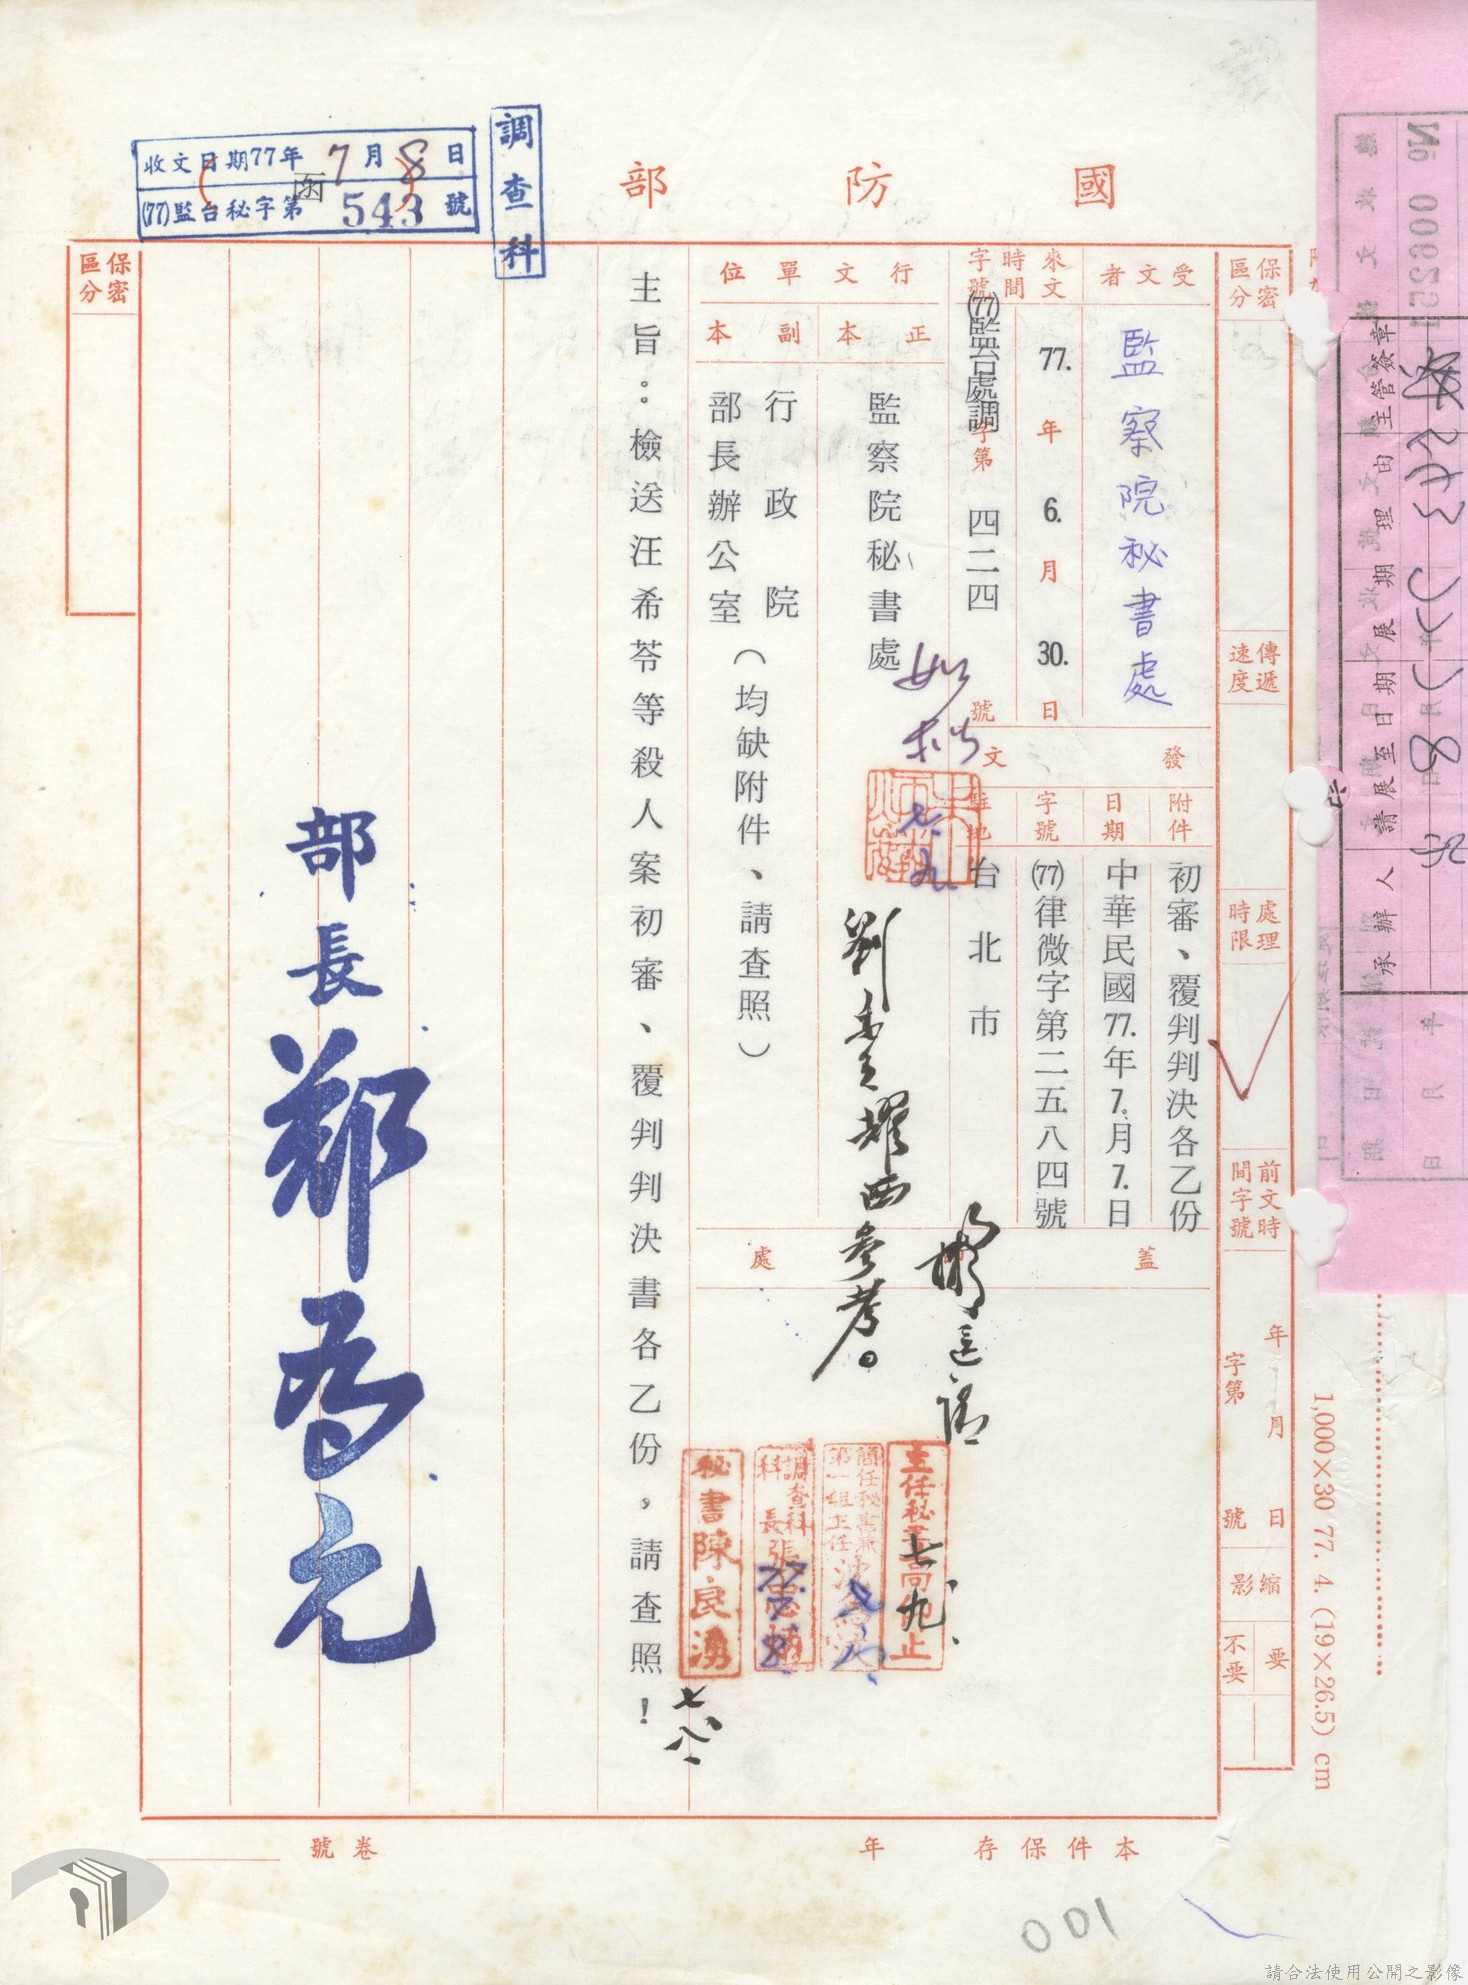 國防部
(函)
保密區分
傳遞速度
處理時限
前文時間字號
年月日
字第
號
縮影
要
不要
受文者
監察院秘書處
來文時間字號
77.年6.月30.日
(77)監台處調字第四二四號
行文單位
正本
監察院秘書處
副本
行政院
部長辦公室
(均缺附件、請查照)
發文
附件
初審、覆判判決各乙份
日期
中華民國77.年7.月7.日
字號
(77)律微字第二五八四號
駐地
台北市
蓋
處
如擬
七.九
主旨:檢送汪希苓等殺人案初審、覆判判決書各乙份,請查照!
部長鄭為元
主任秘書
七.九.
簡任秘書兼第一組主任
調查科科長張
77.7.8.
秘書陳良湧
七.八.
調查科
收文日期77年7月8日
(77)監台秘字第543號
保密區分
本件保存年
卷號
1,000×30 77. 4. (19×26.5) cm
主管簽章
展期理由
請展至日期
承辦人
001
請合法使用公開之影像